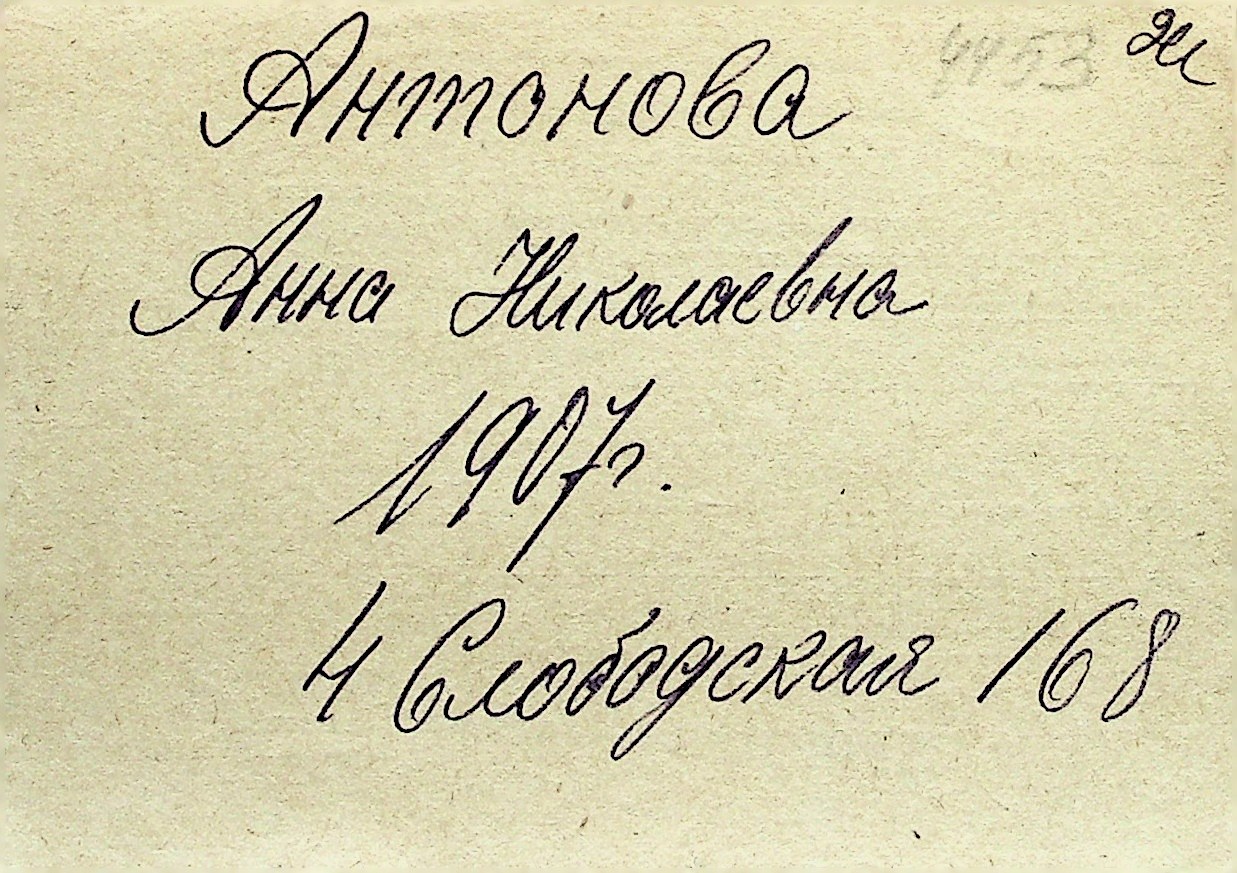 Антонова
Анна Николаевна
1907г.
4 Слободская 168